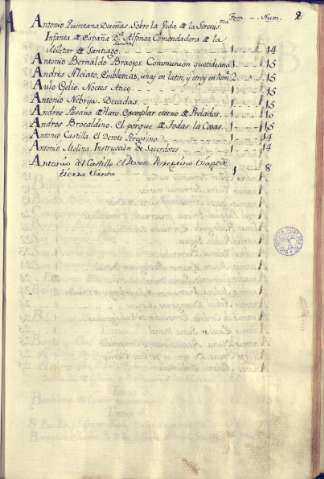 Tom. Num. 2
Antonio Quintana Dueñas Sobre la Vida de la Sereniss.ma
Infanta de España D.ª Sancha Alfonso Comendadora de la
Militar de Santiago 1 14
Antonio Bernaldo Braojos Communion quotidiana 1 15
Andres Alciato, Emblemas, uno en latin, y otro en rom. 2 15
Aulo Gelio Noctes Atice 1 15
Antonio Nebrija Decadas 1 15
Andres Haro, Exemplar eterno de Prelados 1 10
Andres Brocaldino. El porque de todas las Cosas 1 15
Antonio Castillo El Devoto Peregrino 1 14
Antonio Molina. Instruccion de Sacerdotes 1 14
Antonio del Castillo El Devoto Peregrino Viage de
tierra Santa 1 8